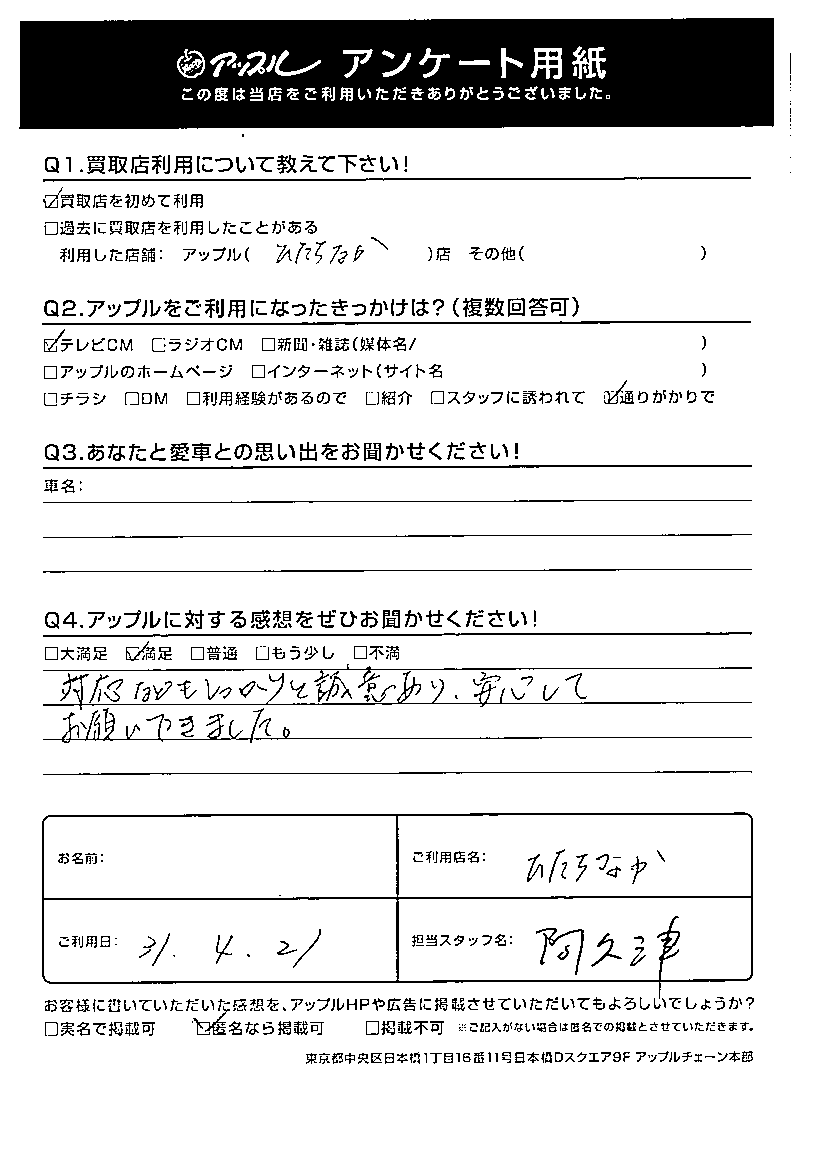 アップル アンケート用紙
この度は当店をご利用いただきありがとうございました。
Q1.買取店利用について教えて下さい!
☑買取店を初めて利用
□過去に買取店を利用したことがある
利用した店舗: アップル( ひたちなか )店 その他( )
Q2.アップルをご利用になったきっかけは?(複数回答可)
☑テレビCM □ラジオCM □新聞・雑誌(媒体名/ )
□アップルのホームページ □インターネット(サイト名 )
□チラシ □DM □利用経験があるので □紹介 □スタッフに誘われて ☑通りがかりで
Q3.あなたと愛車との思い出をお聞かせください!
車名:
Q4.アップルに対する感想をぜひお聞かせください!
□大満足 ☑満足 □普通 □もう少し □不満
対応などもしっかりと誠意あり、安心して
お願いできました。
お名前:
ご利用店名: ひたちなか
ご利用日: 31. 4. 21
担当スタッフ名: 阿久津
お客様に書いていただいた感想を、アップルHPや広告に掲載させていただいてもよろしいでしょうか?
□実名で掲載可 ☑匿名なら掲載可 □掲載不可 ※ご記入がない場合は匿名での掲載とさせていただきます。
東京都中央区日本橋1丁目16番11号日本橋Dスクエア9F アップルチェーン本部